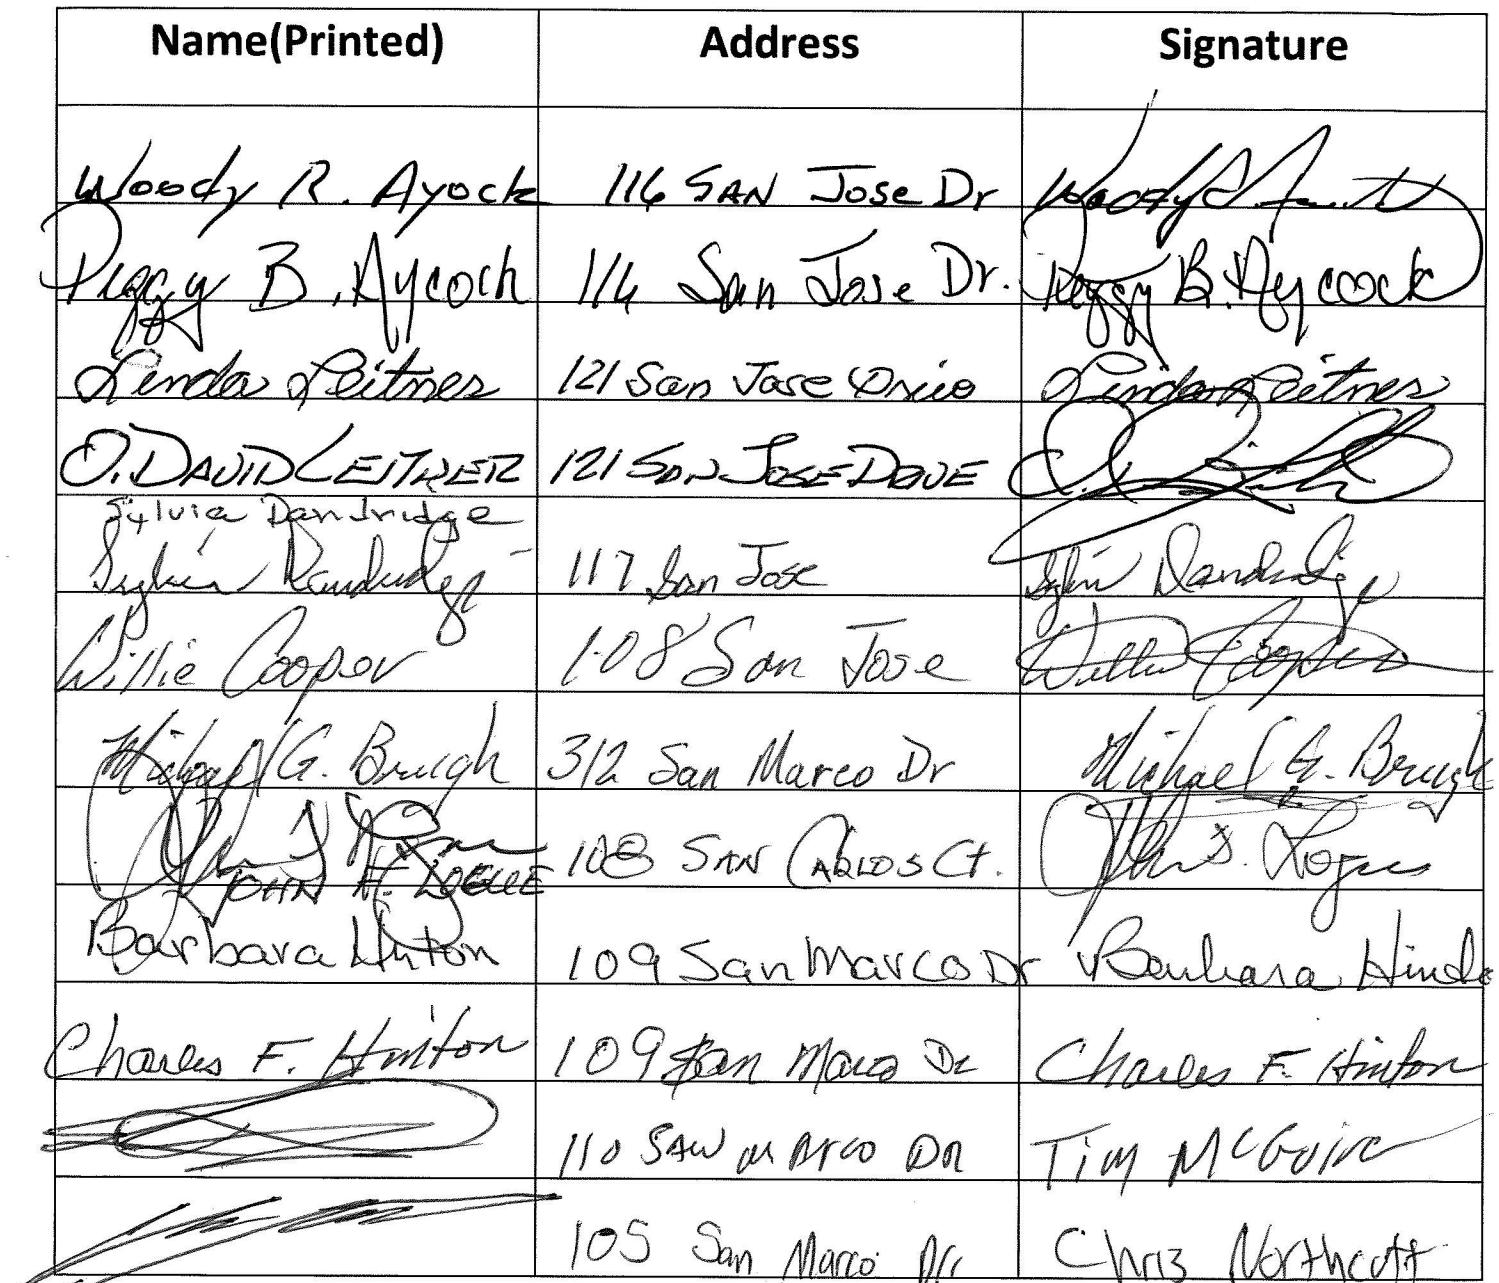 Name(Printed) Address Signature
Woody R. Ayock 116 SAN Jose Dr Woody R.
Peggy B. Aycock 116 San Jose Dr. Peggy B. Aycock
Linda Leitner 121 San Jose Drive Linda Leitner
O. DAVID LEITNER 121 SAN JOSE DRIVE
Sylvia Dandridge
Sylvia Dandridge 117 San Jose Sylvia Dandridge
Willie Cooper 108 San Jose Willie Cooper
Michael G. Brugh 312 San Marco Dr Michael G. Brugh
John 108 SAN CARLOS Ct. John
JOHN
Barbara Hinton 109 San Marco Dr Barbara Hinton
Charles F. Hinton 109 San Marco Dr Charles F. Hinton
110 SAN MArco DR Tim McGuire
105 San Marco Dr Chris Northcutt